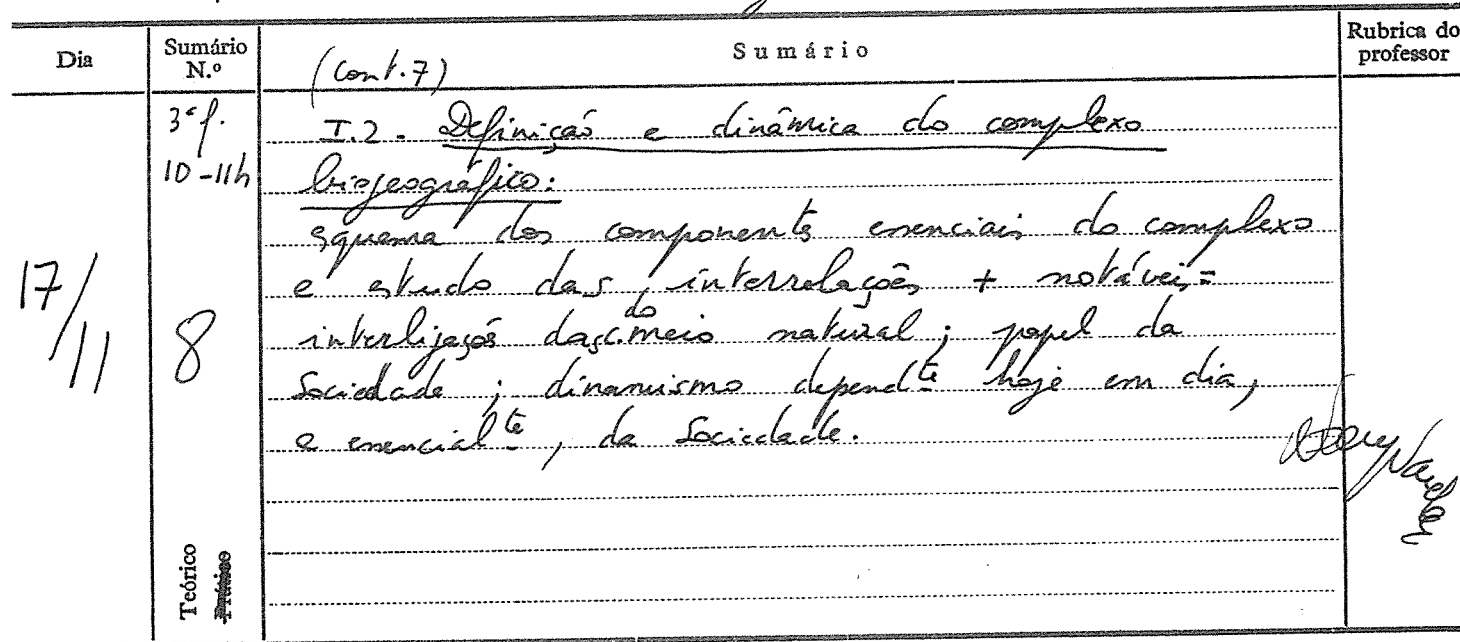 Dia
Sumário N.º
Sumário
Rubrica do professor
(Cont. 7)
17/11
3ª f.
10-11h
8
Teórico
I.2 - Definição e dinâmica do complexo
biogeográfico:
esquema dos components essenciais do complexo
e estudo das interrelações + notáveis =
do
meio natural; papel da
Sociedade; dinamismo dependte hoje em dia,
e essencialte, da Sociedade.